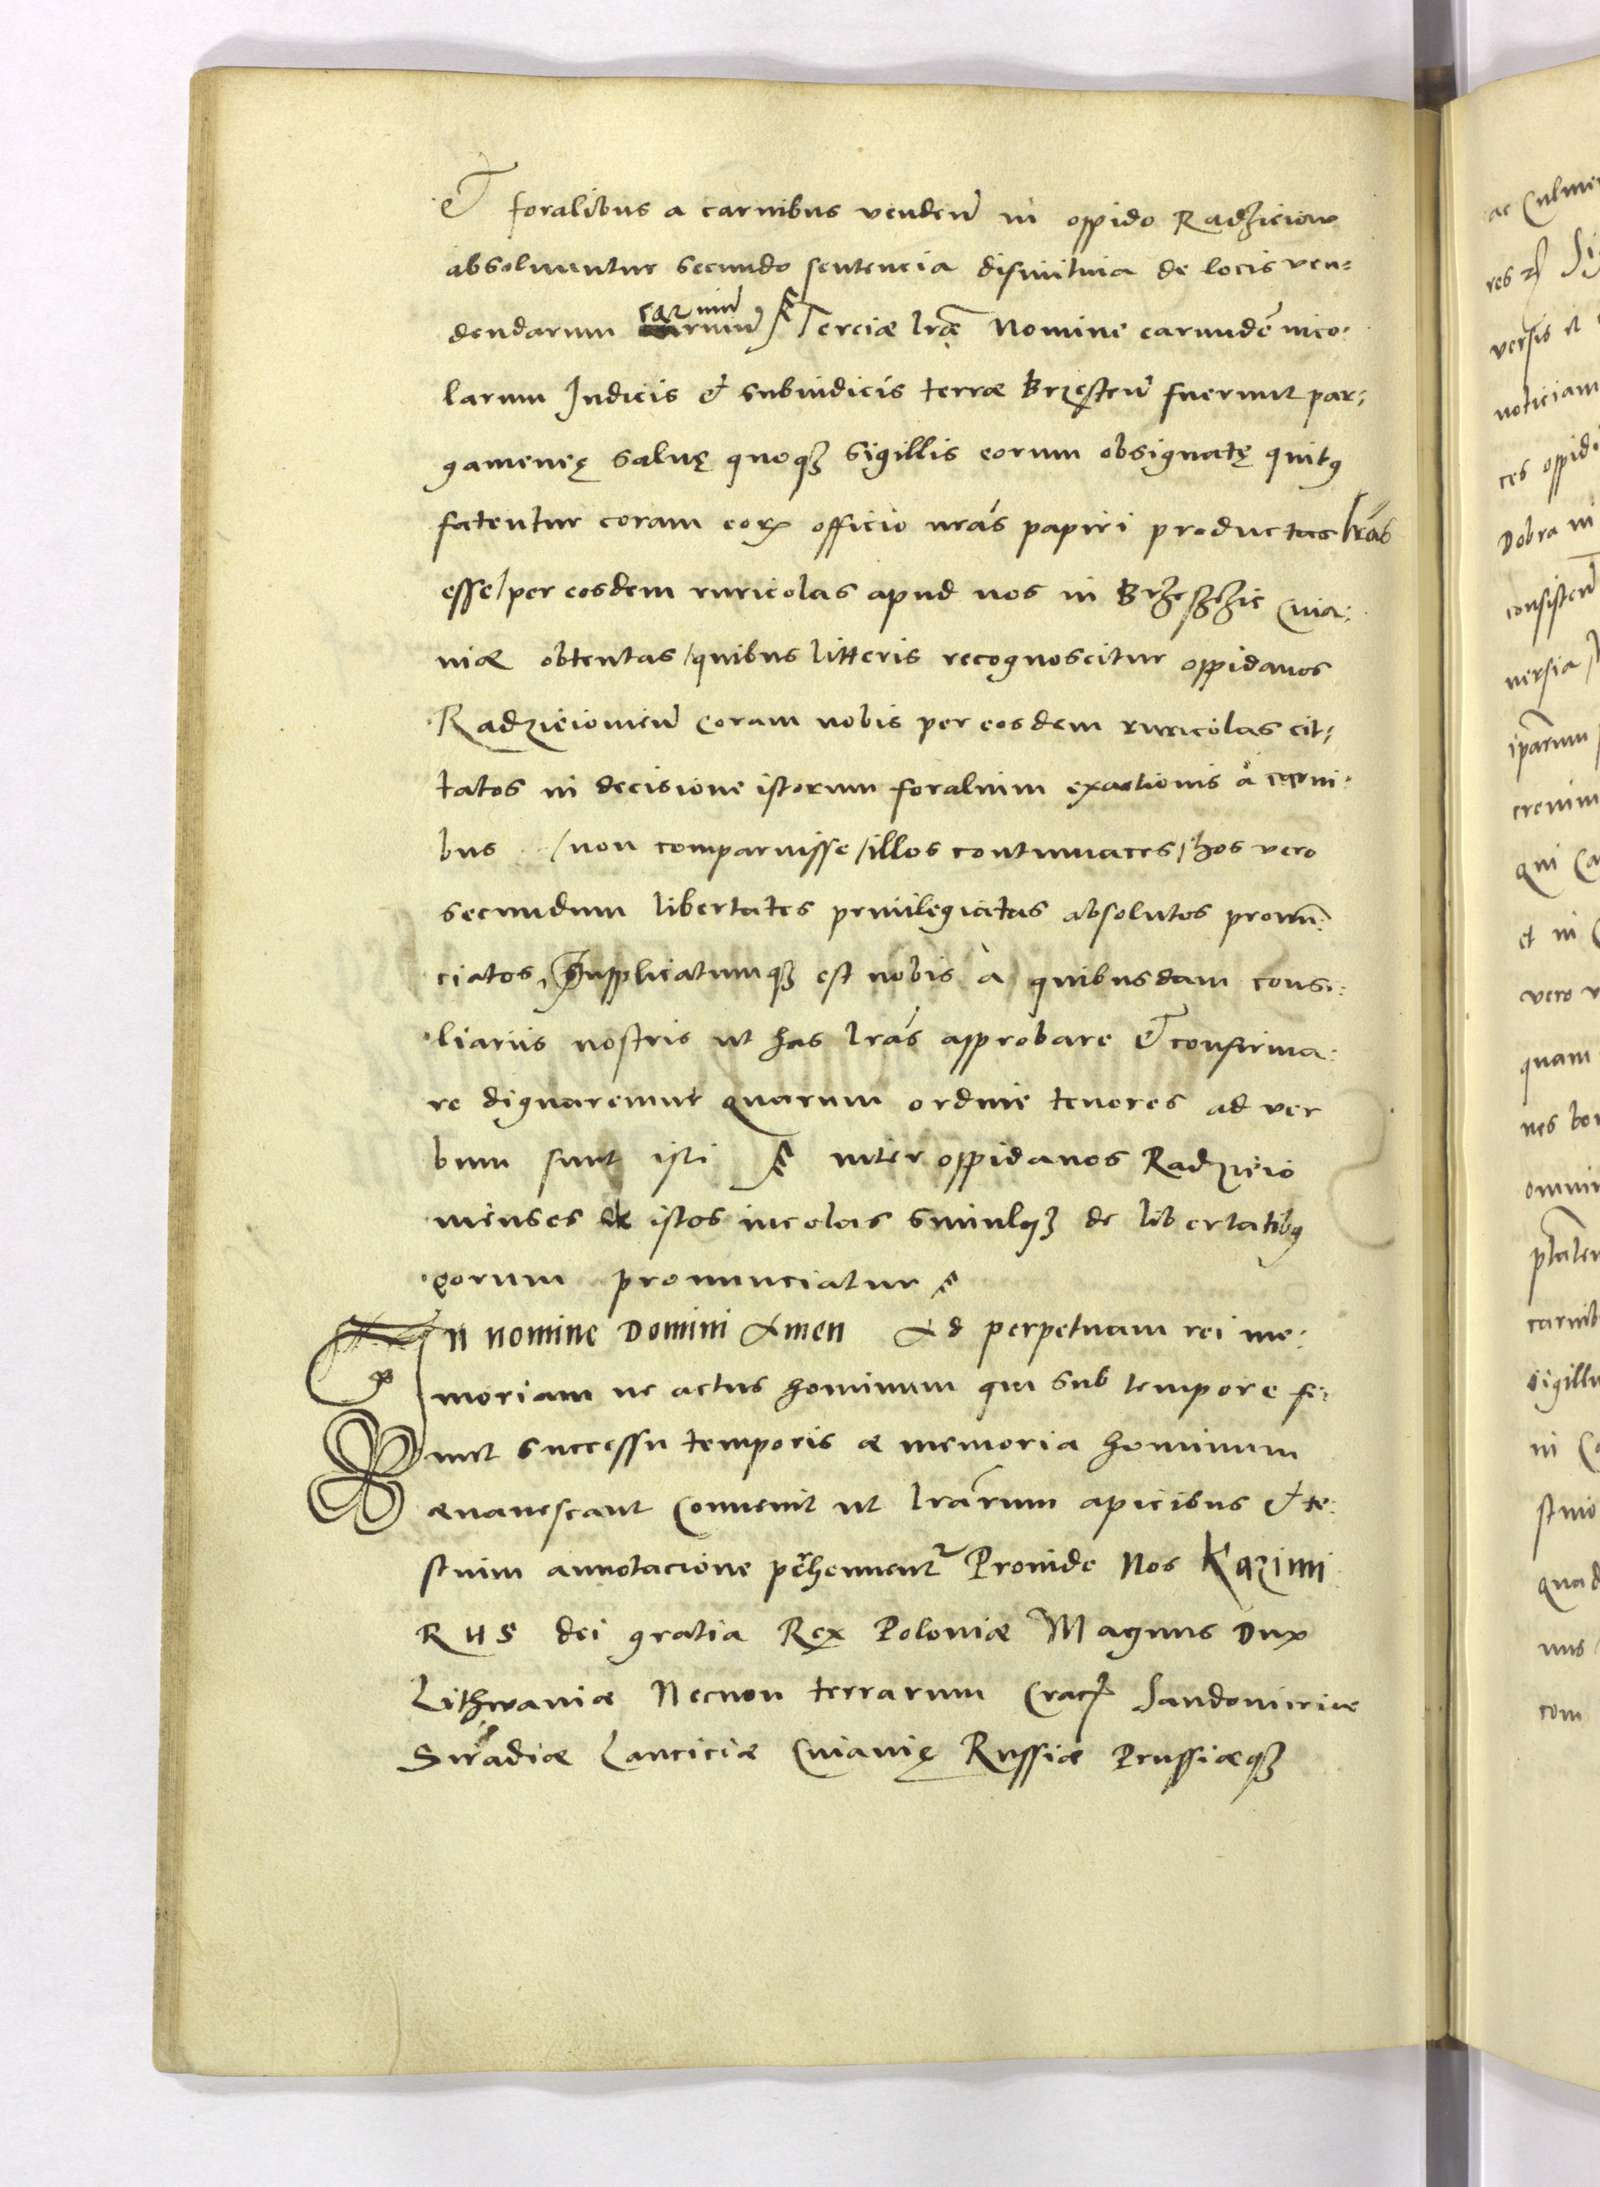 Et foralibus a carnibus venden̄ in oppido Radzieiow
absoluuntur secundo sentencia difinitiua de locis ven:
dendarum carniū Terciæ lr̄æ Nomine earundē inco:
larum Judicis et subiudicis terræ Brzesten̄ fuerunt par:
gameneę saluę quoqꝫ sigillis eorum obsignatę quibꝰ
fatentur coram eoꝝ officio nr̄as papiri productas lr̄as
esse / per eosdem ruricolas apud nos in Brzesczie Cuia:
uiæ obtentas / quibus litteris recognoscitur oppidanos
Radzieiouien̄ coram nobis per eosdem ruricolas cit:
tatos in decisione istorum foralium exactionis à carni:
bus / non comparuisse / illos contumaces / hos vero
secundum libertates priuilegiatas absolutos pronū:
ciatos, Supplicatumqꝫ est nobis à quibusdam consi:
liariis nostris ut has lr̄as approbare et confirma:
re dignaremur quarum ordine tenores ad ver
bum sunt isti inter oppidanos Radzieio
uienses et istos incolas simulqꝫ de libertatibꝰ
eorum pronunciatur
In nomine Domini Amen Ad perpetuam rei me:
moriam ne actus hominum qui sub tempore fi:
unt successu temporis æ memoria hominum
æuanescant Conuenit ut lr̄arum apicibus et te:
stium annotacione perhennent᷑ Proinde Nos Kazimi
RUS dei gratia Rex Poloniæ Magnus Dux
Lithwaniæ Necnon terrarum Crac̄ Sandomiriæ
Siradiæ Lanciciæ Cuiauię Russiæ Prussiæqꝫ
ac Culmen
res
versis et
noticiam
ces oppidi
Dobra in
consisten̄
uersia
ip̄arum
crenim
qui Ca
et in C
vero v
quam
nes bon
omni
carnib
sigillu
in Ca
stuio
quad
nus
com